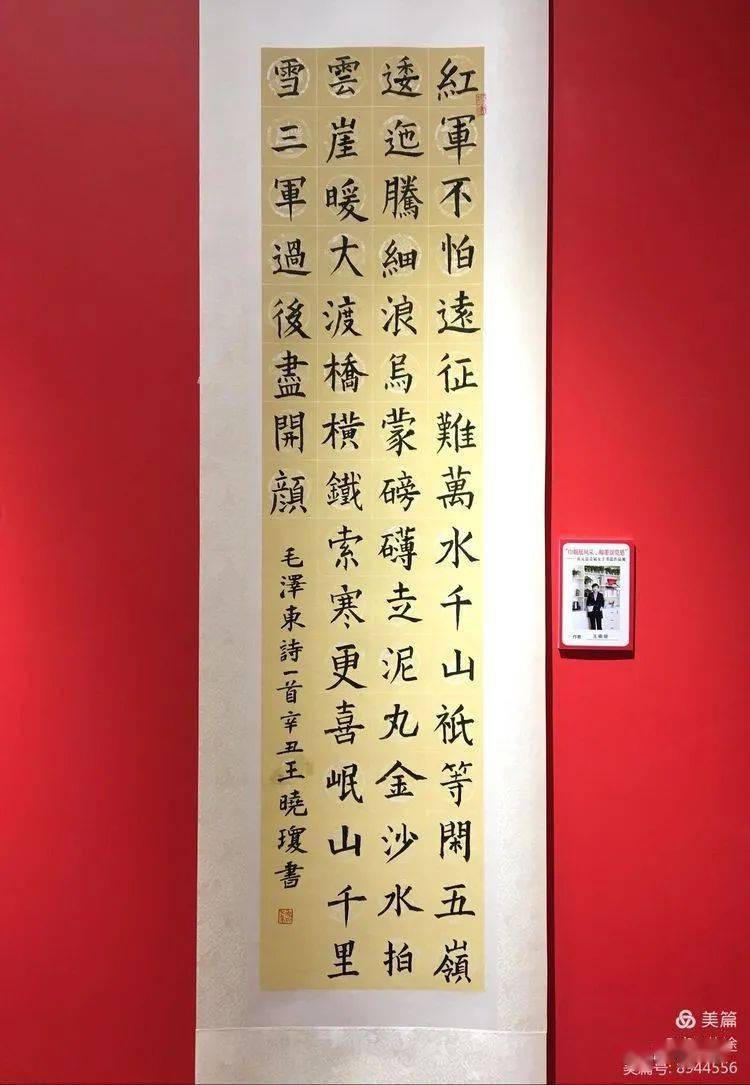 紅軍不怕遠征難萬水千山祇等閑五嶺
逶迤騰細浪烏蒙磅礴走泥丸金沙水拍
雲崖暖大渡橋橫鐵索寒更喜岷山千里
雪三軍過後盡開顏
毛澤東詩一首辛丑王曉瓊書
“巾帼展风采，翰墨颂党恩”
作者 王晓琼
美篇
美篇号: 8944556